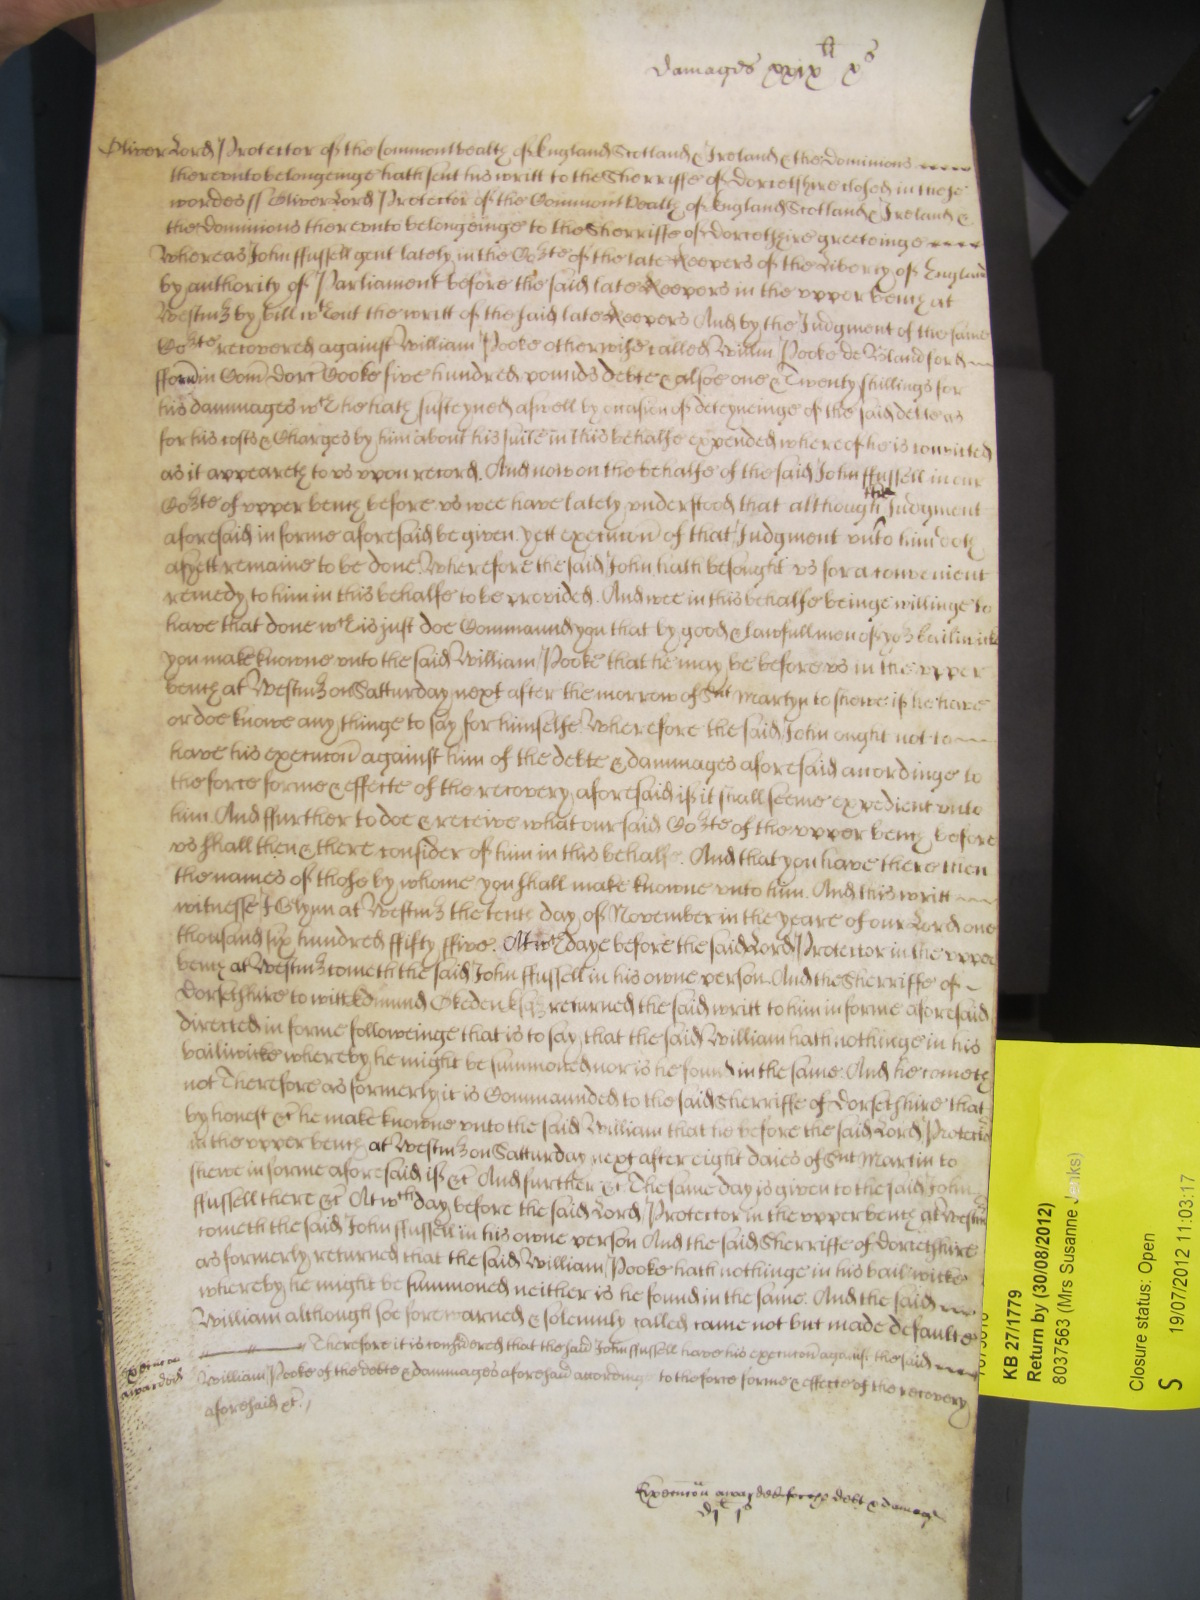 Damages xxix li x s
Oliver Lord Protector of the Commonwealth of England Scotland & Ireland & the Dominions
thereunto belongeinge hath sent his writt to the Sherriffe of Dorcetshire closed in these
wordes ss Oliver Lord Protector of the Commonwealth of England Scotland & Ireland &
the Dominions thereunto belongeinge to the Sherriffe of Dorcetshire greeteinge
Whereas John ffussell gent lately in the Co:rte of the late Keepers of the Liberty of England
by authority of Parliament before the said late Keepers in the upper bench at
Westm by bill w:thout the writt of the said late Keepers And by the Judgment of the same
Co:rte recovered against William Pooke otherwise called Willm Pooke de Blandford
fforū in Com̄ Dorc Gooke five hundred pounds debte & alsoe one & Twenty shillings for
his dammages w:ch he hath susteyned aswell by occasion of deteyneinge of the said debte as
for his costs & Charges by him about his suite in this behalfe expended whereof he is convicted
as it appeareth to us upon record. And now on the behalfe of the said John ffussell in our
Co:rte of upper bench before us wee have lately understood that although the Judgment
aforesaid in forme aforesaid be given. yett execucon̄ of that Judgment unto him doth
as yett remaine to be done. Wherefore the said John hath besought us for a convenient
remedy to him in this behalfe to be provided. And wee in this behalfe beinge willinge to
have that done w:ch is just doe Commaund you that by good & lawfull men of yo:r bailiwicke
you make knowne unto the said William Pooke that he may be before us in the upper
bench at Westm on Satturday next after the morrow of S:nt Martyn to shewe if he have
or doe knowe any thinge to say for himselfe Wherefore the said John ought not to
have his execucon̄ against him of the debte & dammages aforesaid accordinge to
the force forme & effecte of the recovery aforesaid if it shall seeme expedient unto
him. And ffurther to doe & receive what our said Co:rte of the upper bench before
us shall then & there consider of him in this behalfe. And that you have there then
the names of those by whome you shall make knowne unto him. And this writt
witnesse J Glynn at Westm the tenth day of November in the yeare of our Lord one
thousand six hundred ffifty ffive. At w:ch daye before the said Lord Protector in the upper
bench at Westm cometh the said John ffussell in his owne person. And the Sherriffe of
Dorsetshire to witt Edmund Okeden Esq returned the said writt to him in forme aforesaid
directed in forme followeinge that is to say, that the said William hath nothinge in his
bailiwicke whereby he might be summoned nor is he found in the same. And he cometh
not Therefore as formerly it is Commaunded to the said Sherriffe of Dorsetshire that
by honest &c he make knowne unto the said William that he before the said Lord Protector
in the upper bench at Westm on Satturday next after eight daies of S:nt Martin to
shewe in forme aforesaid if &c And further &c The same day is given to the said John
ffussell there &c At w:ch day before the said Lord Protector in the upper bench at Westm
cometh the said John ffussell in his owne person And the said Sherriffe of Dorcetshire
as formerly returned that the said William Pooke hath nothinge in his bailiwicke
whereby he might be summoned neither is he found in the same. And the said
William although soe forewarned & solemnly called came not but made defaulte
Therefore it is considered that the said John ffussell have his execucon̄ against the said
Execucon
awarded
William Pooke of the debte & dammages aforesaid accordinge to the force forme & effecte of the recovery
aforesaid &c.
Execucon̄ awarded for debt & damage
KB 27/1779
Return by (30/08/2012)
8037563 (Mrs Susanne Jenks)
Closure status: Open
S 19/07/2012 11:03:17